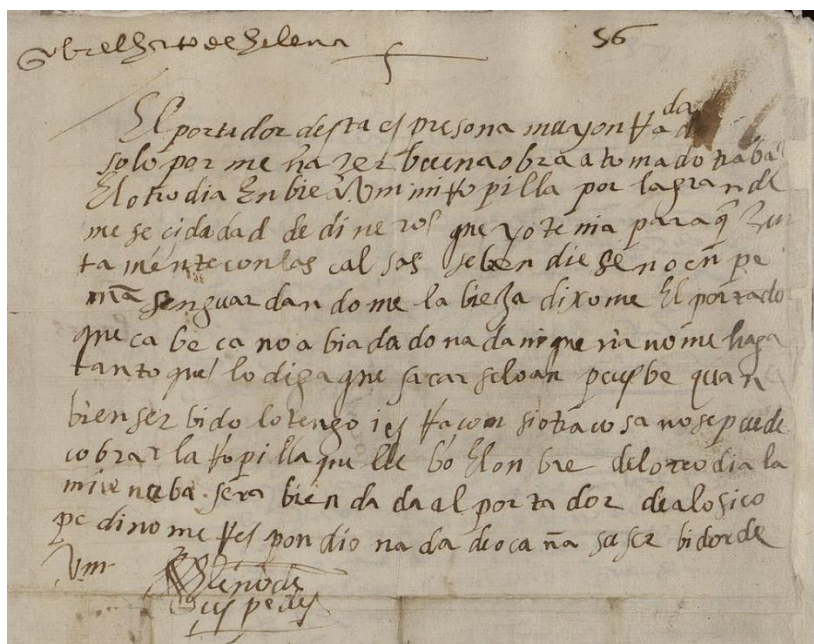 sobre el harto de helena
56
El portador desta es presona muy onrrada
solo por me hazer buena obra a tomado traba
El otro dia Enbie a Vm mi rropilla por la grande
me se cidadad de dineros que yo tenia para q Jun
ta mente con las cal sas se ben die se no en pe
guar dan do me la bieja dixo me El portador
que ca be ca no a bia da do na da ni que ria no me haga
tanto que lo diga que sacar selo an pues be quan
bien ser bido lo tengo i es si otra cosa no se puede
cobrar la rropilla que lle bo El on bre del otro dia la
mire nueba sera bien da da al por ta dor de alosico
pedi no me rres pon dio na da de oca ña su ser bidor de
Vm
Eleno de
cespedes